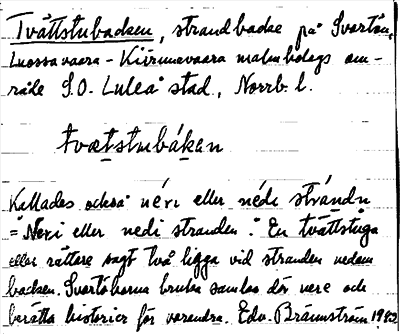 Tvättstubacken, strandbacke på Svartön,
Luossavaara-Kiirunavaara malmbolags om-
råde S.O. Luleå stad, Norrb. l.
tvætstubákен
Kallades också néri eller nédi strándn
= "Neri eller nedi stranden." En tvättstuga
eller rättare sagt två ligga vid stranden nedom
backen. Svartöborna bruka samlas där nere och
berätta historier för varandra. Edv. Brännström 1932